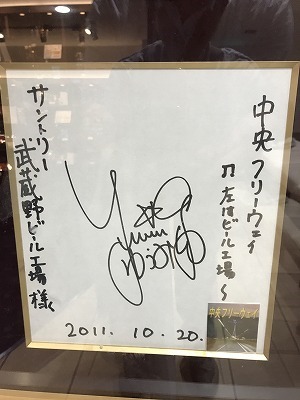 中央フリーウェイ
♫左はビール工場〜
サントリー
武蔵野ビール工場様へ
2011. 10. 20.
中央フリーウェイ